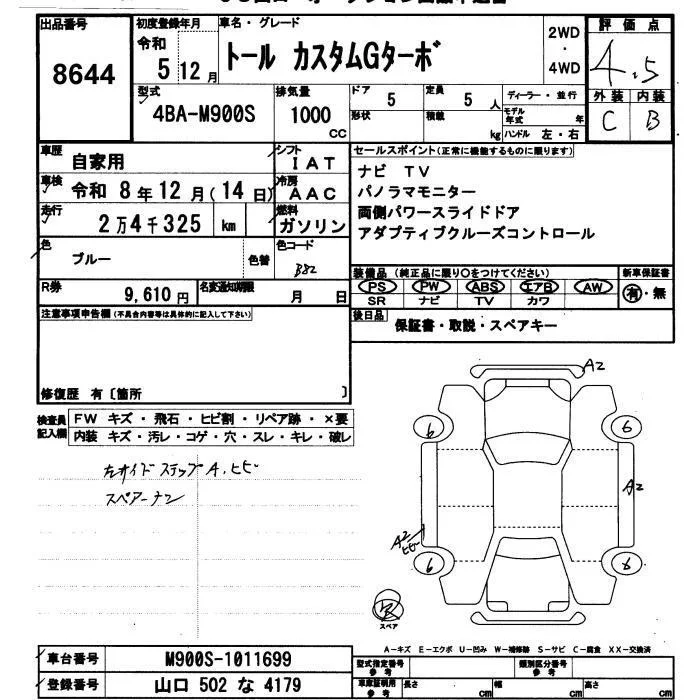 出品番号
8644
初度登録年月
令和
5 12月
車名・グレード
トール カスタムGターボ
2WD
・
4WD
評価点
4.5
外装 内装
C B
型式
4BA-M900S
排気量
1000
CC
ドア 5
形状
定員 5 人
積載 kg
ディーラー・並行
モデル年式 年
ハンドル 左・右
車歴 自家用
シフト IAT
車検 令和 8年12月(14日)
冷房 AAC
走行 2万4千325 km
燃料 ガソリン
色 ブルー 色替
色コード B82
R券 9,610円
名変通知期限 月 日
注意事項申告欄(不具合内容等は具体的に記入して下さい)
修復歴 有〔箇所 〕
セールスポイント(正常に機能するものに限ります)
ナビ TV
パノラマモニター
両側パワースライドドア
アダプティブクルーズコントロール
装備品(純正品に限り○をつけてください)
PS PW ABS エアB AW
SR ナビ TV カワ
新車保証書
有・無
後日品 保証書・取説・スペアキー
検査員記入欄
FW キズ・飛石・ヒビ割・リペア跡・×要
内装 キズ・汚レ・コゲ・穴・スレ・キレ・破レ
左サイドステップA、ヒビ
スペアーナシ
A2
6
6
A2
A2
ヒビ
6
6
スペア
A-キズ E-エクボ U-凹み W-補修跡 S-サビ C-腐食 XX-交換済
車台番号 M900S-1011699
登録番号 山口 502 な 4179
型式指定番号
参考
類別区分番号
参考
車庫証明用
参考
長さ cm
幅 cm
高さ cm